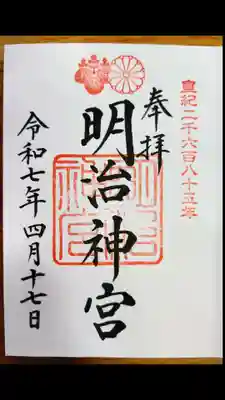 皇紀二千六百八十五年
奉拝
明治神宮
令和七年四月十七日